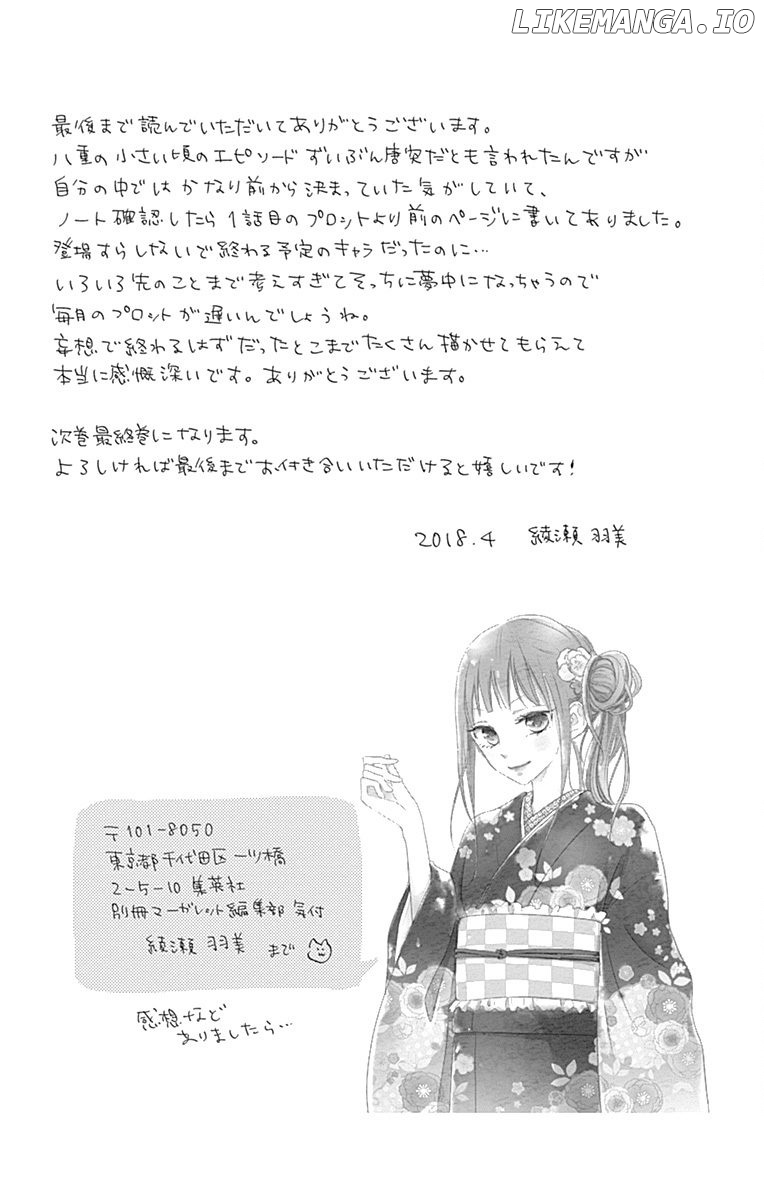 LIKEMANGA.IO
最後まで読んでいただいてありがとうございます。
八重の小さい頃のエピソードずいぶん唐突だとも言われたんですが
自分の中ではかなり前から決まっていた気がしていて、
ノート確認したら1話目のプロットより前のページに書いてありました。
登場すらしないで終わる予定のキャラだったのに…
いろいろ先のことまで考えすぎてそっちに夢中になっちゃうので
毎月のプロットが遅いんでしょうね。
妄想で終わるはずだったとこまでたくさん描かせてもらえて
本当に感慨深いです。ありがとうございます。
次巻最終巻になります。
よろしければ最後までお付き合いいただけると嬉しいです!
2018.4 綾瀬羽美
〒101-8050
東京都千代田区一ツ橋
2-5-10 集英社
別冊マーガレット編集部 気付
綾瀬羽美 まで
感想など
ありましたら…